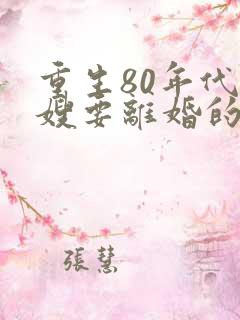 重生80年代
嫂要離婚的
張慧